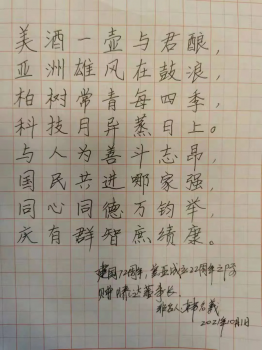 美酒一壶与君酿，
亚洲雄风在鼓浪，
柏树常青每四季，
科技月异蒸日上。
与人为善斗志昂，
国民共进哪家强，
同心同德万钧举，
庆有群智庶绩康。
建国72周年，成立22周年之际
赠 董事长
2021年10月1日